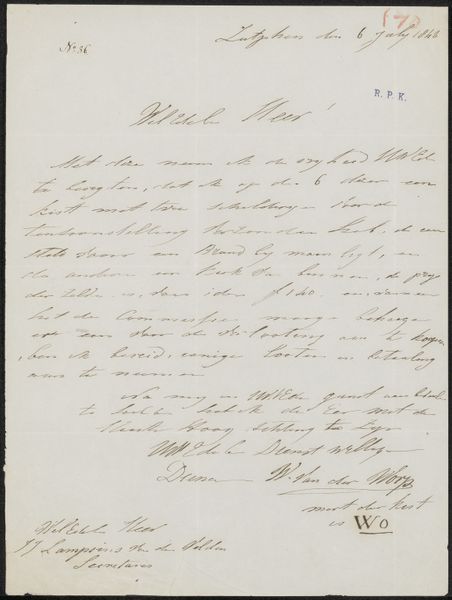 (7)
Zutphen den 6 July 1846
No. 36
R. P. K.
WelEdele Heer!
Met deze neem ik de vryheid UWEd
te berigten, dat ik op den 6 dezer een
kist met twee schilderyen voor de
tentoonstelling verzonden heb, de een
stelt voor een Brand by maan ligt, en
de andere een Kerk van binnen, de prys
der zelve is, van ieder f 140. en
het de Commissie mogte behagen
een voor de verlooting aan te koopen
ben ik bereid, eenige looten in betaling
aan te nemen
Na my in UWEd gunst aan bevolen
te hebben heb ik de Eer met de
Hoog achting te zyn
UWEdele Dienstwillige
Dienaar W. van der Worp
merk der kist
is WO
WelEdele Heer
Secretaris